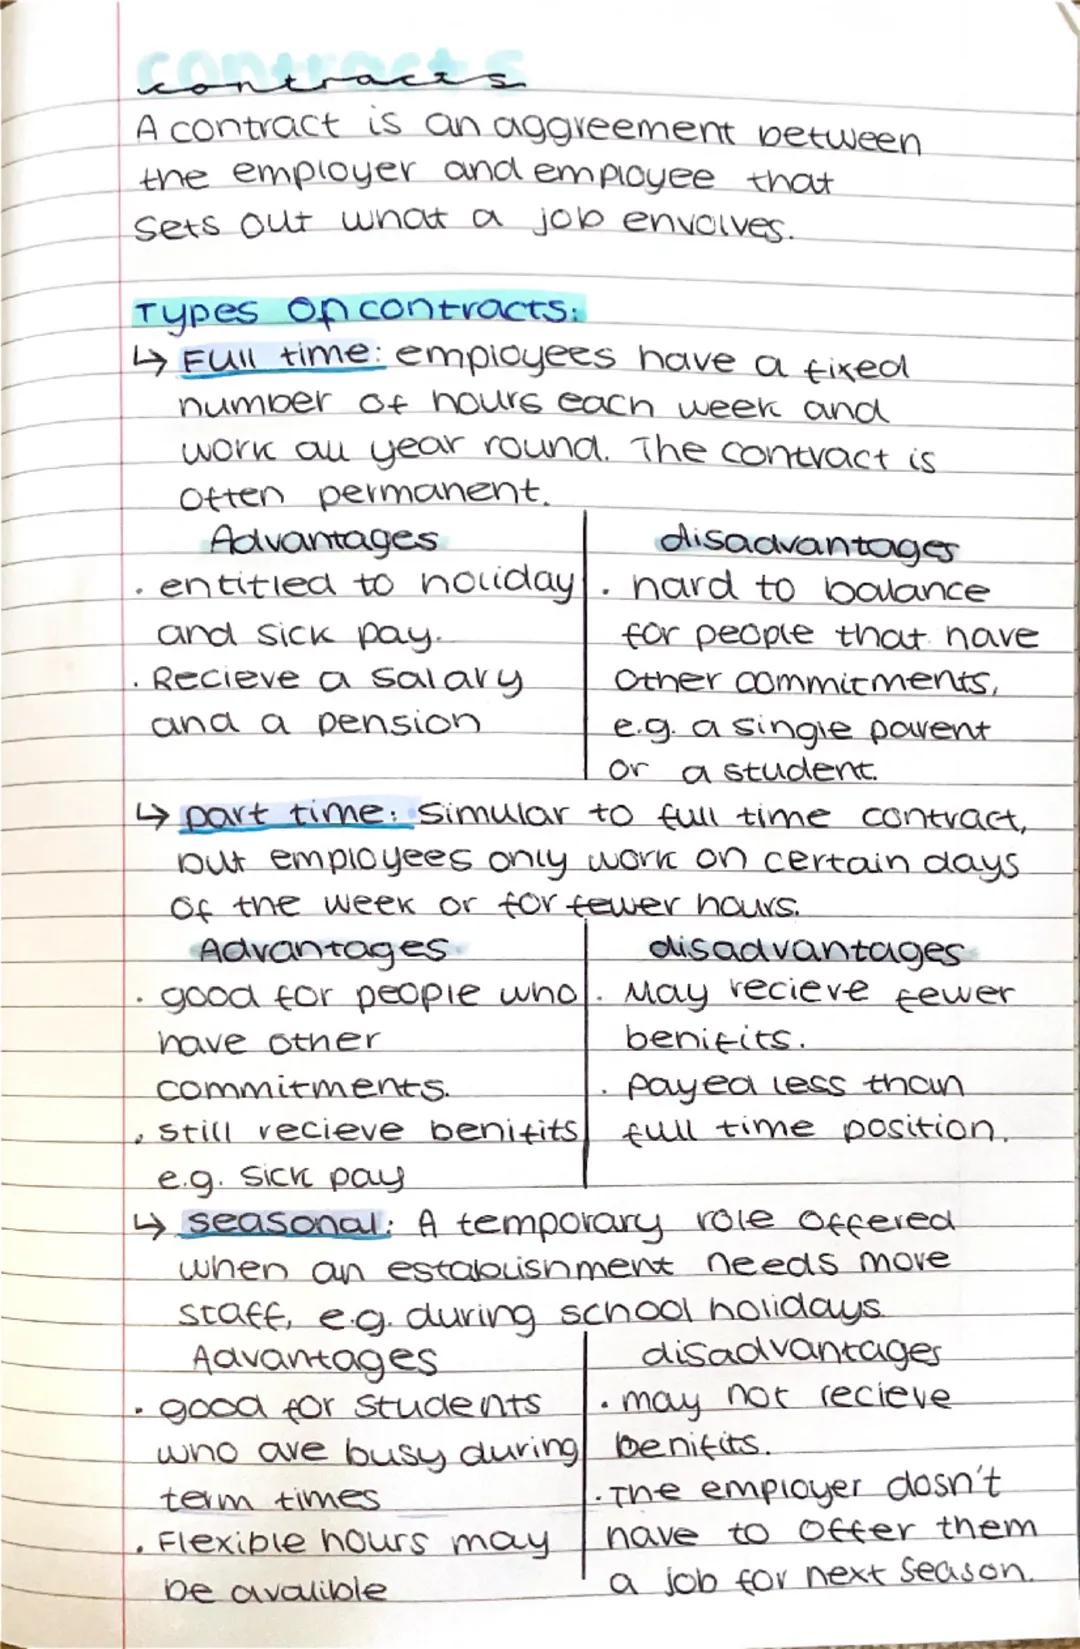 contracts
A contract is an aggreement between
the employer and employee that
sets out what a job envolves.
Types of contracts:
↳ Full time: employees have a fixed
number of hours each week and
work all year round. The contract is
often permanent.
Advantages
· entitled to holiday
and sick pay.
· Recieve a salary
and a pension
disadvantages
· hard to balance
for people that have
other commitments,
e.g. a single parent
or a student.
↳ part time: Simular to full time contract,
but employees only work on certain days
of the week or for fewer hours.
Advantages
· good for people who
have other
commitments.
· still recieve benifits
e.g. sick pay
disadvantages
· May recieve fewer
benifits.
· payed less than
full time position.
↳ seasonal: A temporary role offered
when an establishment needs more
staff, e.g. during school holidays
Advantages
· good for students
who are busy during
term times
· Flexible hours may
be avalible
disadvantages
· may not recieve
benifits.
· The employer dosn't
have to offer them
a job for next season.